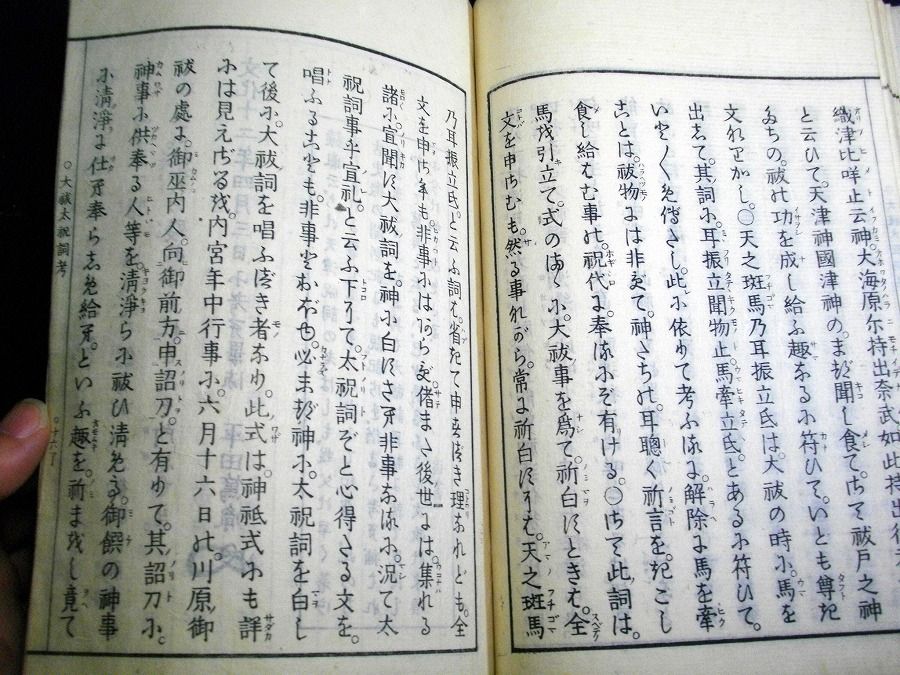 織津比咩止云神。大海原尓持出奈武如此持出
と云ひて。天津神國津神の。まづ聞し食て。さて祓戸之神
たちの。祓の功を成し給ふ趣なるに符ひて。いとも尊き
文なりかし。○天之斑馬乃耳振立弖は。大祓の時に。馬を
出して。其詞に。耳振立聞物止。馬牽立弖。とあるに符ひて。
いとくめでたし。此に依りて考ふるに。解除に馬を牽
ことは。祓物には非ずて。神たちの。耳聰く祈言を。きこし
食し給はむ事の。祝代に奉るにぞ有ける。○さて此詞は。
馬を引立て。式のまゝに。大祓事を爲て。祈白すときは。全
文を申さむも。然る事ながら。常に祈白すには。天之斑馬
乃耳振立弖と云ふ詞を。省きて申すべき理なれども。全
文を申さむも。非事にはあらず。偖また後世には。集れる
諸に。宣聞す大祓詞を。神に白すさへ非事なるに。况て太
祝詞事乎宣礼。と云ふ下にて。太祝詞ぞと心得たる文を。
唱ふることも。非事なれども。必まづ神に。太祝詞を白し
て後に。大祓詞を唱ふべき者なり。此式は。神祇式にも詳
には見えざるを。内宮年中行事に。六月十六日の。川原御
祓の處に。御巫内人。向御前方。申詔刀。と有りて。其詔刀に。
神事に供奉る人等を。清淨らに祓ひ清める。御饌の神事
に清淨に仕奉らしめ給へ。といふ趣を。祈まをし竟て
○大祓太祝詞考